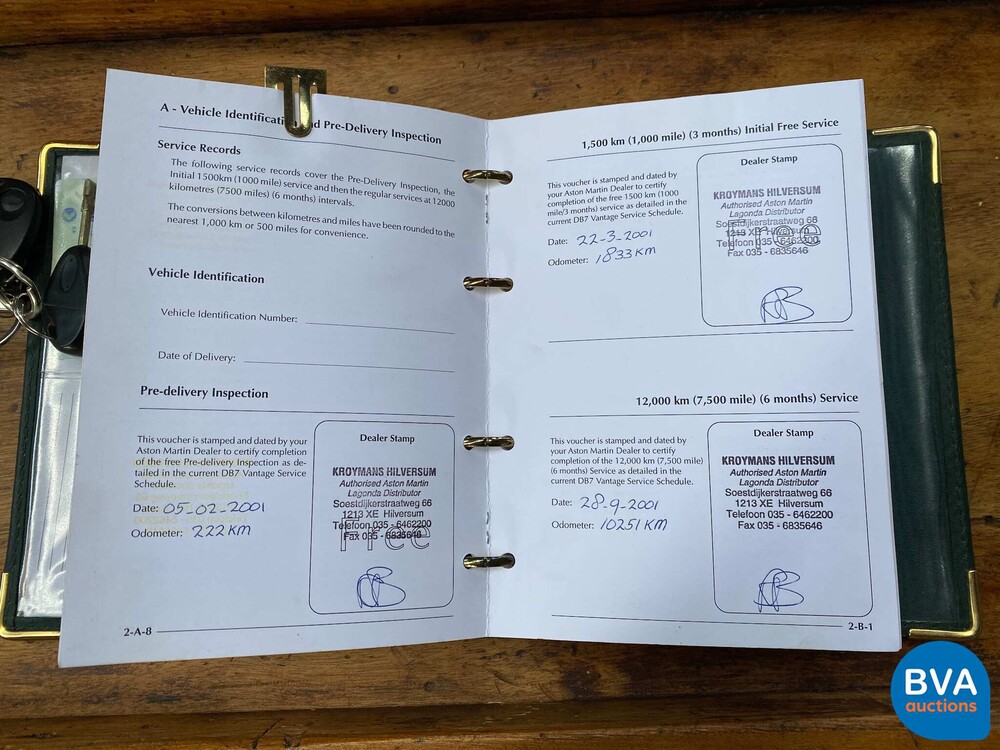 A - Vehicle Identification and Pre-Delivery Inspection
Service Records
The following service records cover the Pre-Delivery Inspection, the
Initial 1500km (1000 mile) service and then the regular services at 12000
kilometres (7500 miles) (6 months) intervals.
The conversions between kilometres and miles have been rounded to the
nearest 1,000 km or 500 miles for convenience.
Vehicle Identification
Vehicle Identification Number:
Date of Delivery:
Pre-delivery Inspection
This voucher is stamped and dated by your
Aston Martin Dealer to certify completion
of the free Pre-delivery Inspection as de-
tailed in the current DB7 Vantage Service
Schedule.
Date: 05-02-2001
Odometer: 222 KM
Dealer Stamp
KROYMANS HILVERSUM
Authorised Aston Martin
Lagonda Distributor
Soestdijkerstraatweg 66
1213 XE Hilversum
Telefoon 035 - 6462200
Fax 035 - 6835646
Free
2-A-8
1,500 km (1,000 mile) (3 months) Initial Free Service
This voucher is stamped and dated by
your Aston Martin Dealer to certify
completion of the free 1500 km (1000
mile/3 months) service as detailed in the
current DB7 Vantage Service Schedule.
Date: 22-3-2001
Odometer: 1833 KM
Dealer Stamp
KROYMANS HILVERSUM
Authorised Aston Martin
Lagonda Distributor
Soestdijkerstraatweg 66
1213 XE Hilversum
Telefoon 035 - 6462200
Fax 035 - 6835646
Free
12,000 km (7,500 mile) (6 months) Service
This voucher is stamped and dated by
your Aston Martin Dealer to certify
completion of the 12,000 km (7,500 mile)
(6 months) Service as detailed in the
current DB7 Vantage Service Schedule.
Date: 28-9-2001
Odometer: 10251 KM
Dealer Stamp
KROYMANS HILVERSUM
Authorised Aston Martin
Lagonda Distributor
Soestdijkerstraatweg 66
1213 XE Hilversum
Telefoon 035 - 6462200
Fax 035 - 6835646
2-B-1
BVA
auctions